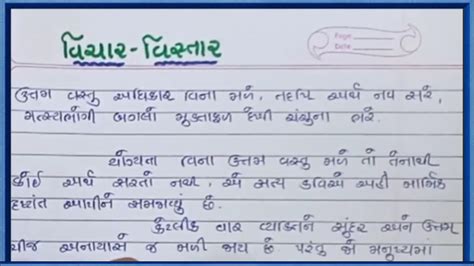 વિચાર-વિસ્તાર
Page
Date
ઉત્તમ વસ્તુ અધિકાર વિના મળે, તદપિ અર્થ નવ સરે,
મત્સ્યભોગી બગલો મુક્તાફળ દેખી ચંચુના ભરે.
યોગ્યતા વિના ઉત્તમ વસ્તુ મળે તો તેનાથી
કોઈ અર્થ સરતો નથી, એ સત્ય કવિએ અહીં માર્મિક
દૃષ્ટાંત આપીને સમજાવ્યું છે.
કેટલીક વાર વ્યક્તિને સુંદર અને ઉત્તમ
ચીજ અનાયાસે જ મળી જાય છે પરંતુ એ મનુષ્યમાં